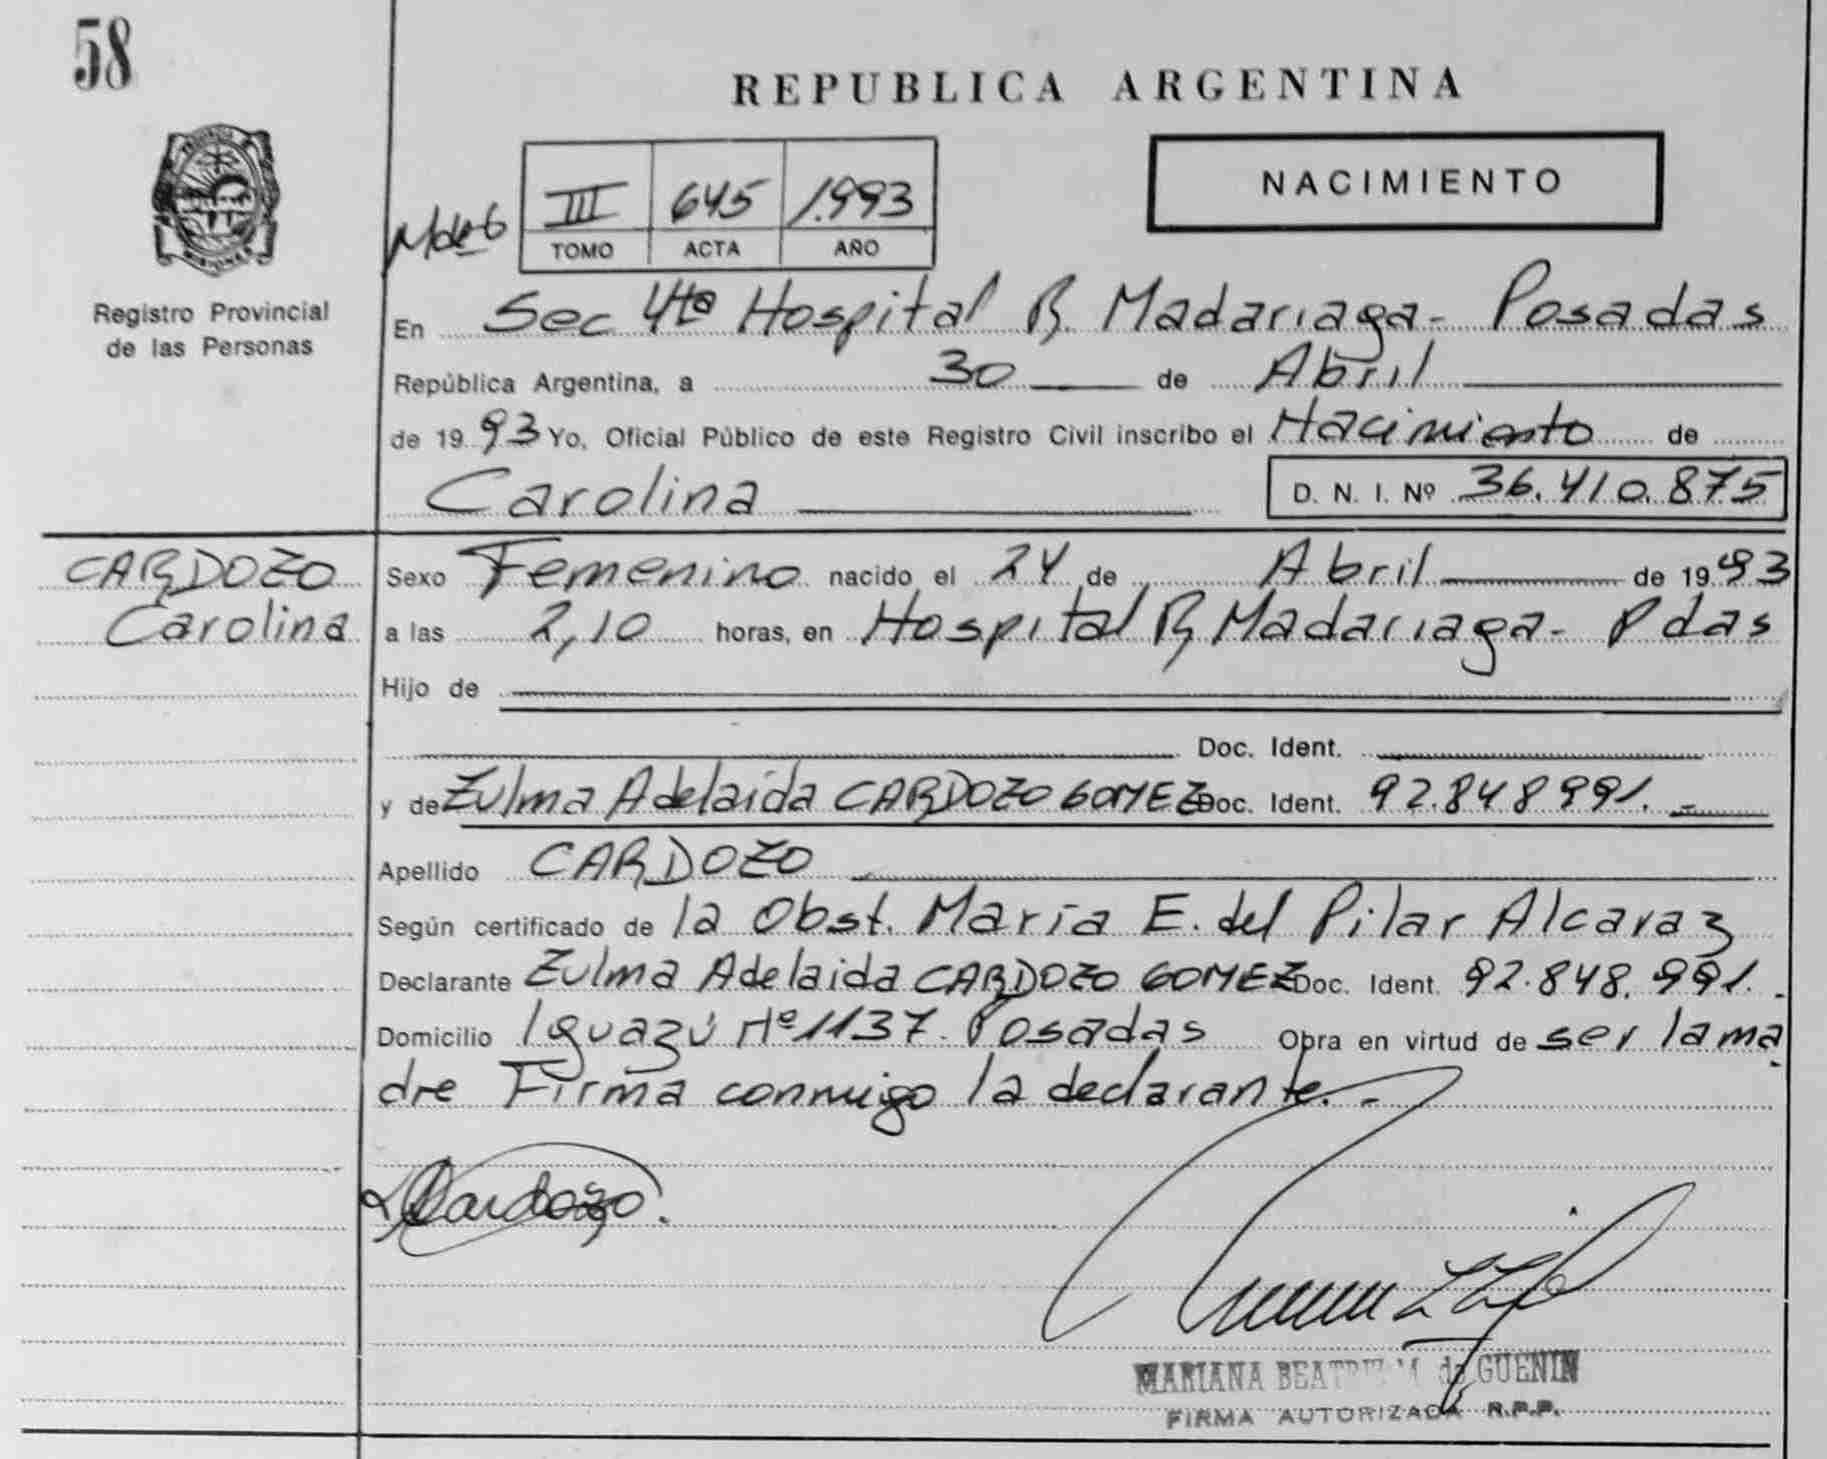 58
REPUBLICA ARGENTINA
NACIMIENTO
III 645 1.993
TOMO ACTA AÑO
MISIONES
Registro Provincial
de las Personas
En Sec 4ta Hospital R. Madariaga - Posadas
República Argentina, a 30 de Abril
de 1993 Yo, Oficial Público de este Registro Civil inscribo el Nacimiento de
Carolina D. N. I. Nº 36.410.875
CARDOZO
Carolina
Sexo Femenino nacido el 24 de Abril de 1993
a las 2,10 horas, en Hospital R. Madariaga - Pdas
Hijo de
Doc. Ident.
y de Zulma Adelaida CARDOZO GOMEZ Doc. Ident. 92.848 991. -
Apellido CARDOZO
Según certificado de la Obst. María E. del Pilar Alcaraz
Declarante Zulma Adelaida CARDOZO GOMEZ Doc. Ident. 92.848.991. -
Domicilio Iguazú Nº 1137 - Posadas Obra en virtud de ser la ma
dre Firma conmigo la declarante. -
Cardozo.
MARIANA BEATRIZ M de GUENIN
FIRMA AUTORIZADA R.P.P.